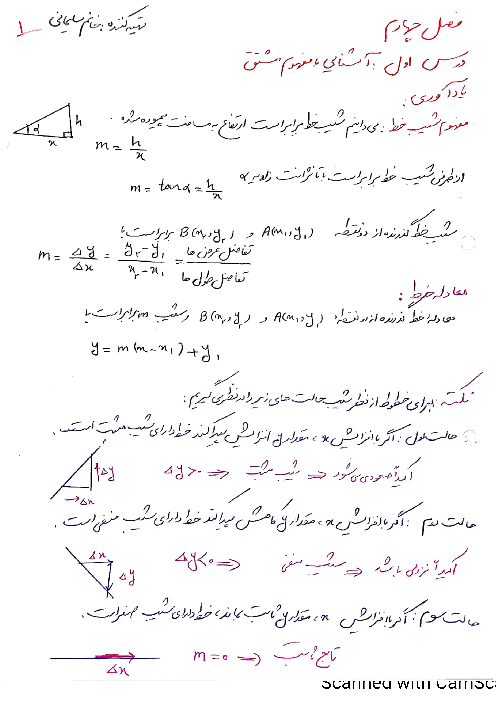 تهیه کننده: خانم سلیمانی
1
فصل چهارم
درس اول: آشنایی با مفهوم مشتق
یادآوری:
مفهوم شیب خط: می دانیم شیب خط برابر است ارتفاع به مسافت پیموده شده
h
α
x
m = h/x
از طرفی شیب خط برابر است با تانژانت زاویه α
m = tanα = h/x
شیب خط گذرنده از دو نقطه A(x₁,y₁) و B(x₂,y₂) برابر است با
m = Δy/Δx = (y₂-y₁)/(x₂-x₁) = تفاضل عرض ها / تفاضل طول ها
معادله خط:
معادله خط گذرنده از دو نقطه A(x₁,y₁) و B(x₂,y₂) و شیب m برابر است با
y = m(x-x₁)+y₁
نکته: برای خطوط از نظر شیب حالت های زیر را در نظر می گیریم:
حالت اول: اگر با افزایش x، مقدار y افزایش پیدا کند خط دارای شیب مثبت است.
Δy
Δx
Δy>0 ⇒ شیب مثبت ⇒ اکیداً صعودی می شود
حالت دوم: اگر با افزایش x، مقدار y کاهش پیدا کند خط دارای شیب منفی است.
Δx
Δy
Δy<0 ⇒ شیب منفی ⇒ اکیداً نزولی باشد
حالت سوم: اگر با افزایش x، مقدار y ثابت بماند، خط دارای شیب صفر است.
Δx
m=0 ⇒ تابع ثابت
Scanned with CamSca